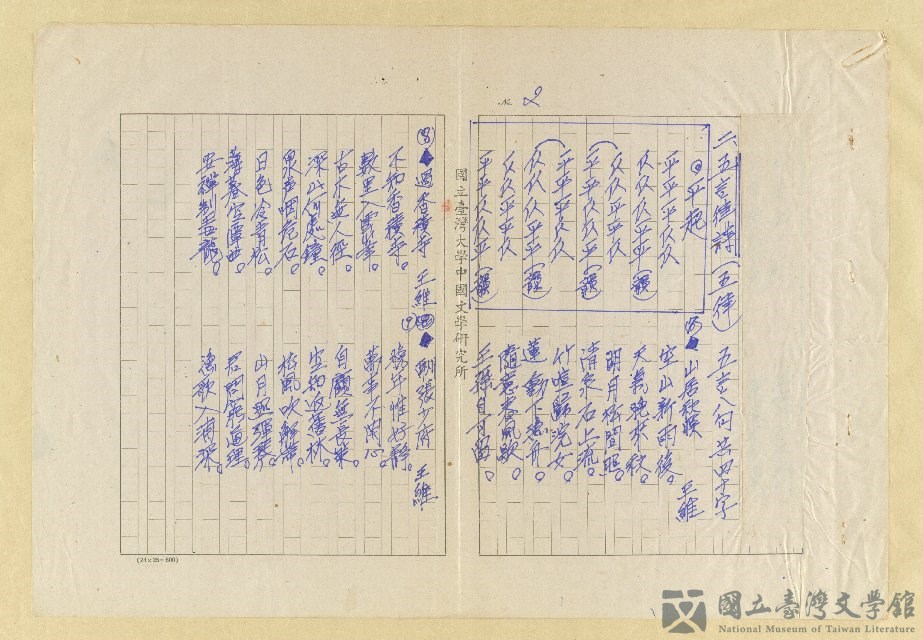 № 2
二、五言律詩（五律） 五言八句共四十字
◎平起
平平平仄仄
仄仄仄平平（韻）
仄仄平平仄
平平仄仄平（韻）
平平平仄仄
仄仄仄平平（韻）
仄仄平平仄
平平仄仄平（韻）
山居秋暝 王維
空山新雨後。
天氣晚來秋。
明月松間照。
清泉石上流。
竹喧歸浣女。
蓮動下漁舟。
隨意春風歇。
王孫自可留。
國立臺灣大學中國文學研究所
(8) 過香積寺 王維
不知香積寺。
數里入雲峯。
古木無人徑。
深山何處鐘。
泉聲咽危石。
日色冷青松。
薄暮空潭曲。
安禪制毒龍。
(9) 酬張少府 王維
晚年惟好靜。
萬事不關心。
自顧無長策。
空知返舊林。
松風吹解帶。
山月照彈琴。
君問窮通理。
漁歌入浦深。
(24×25=600)
國立臺灣文學館
National Museum of Taiwan Literature